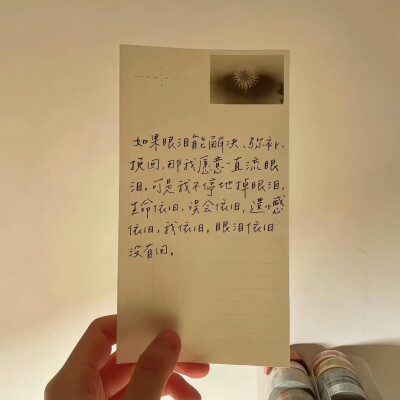 如果眼泪能解决、弥补、
挽回,那我愿意一直流眼
泪。可是我不停地掉眼泪,
生命依旧,误会依旧,遗憾
依旧,我依旧。眼泪依旧
没有用。